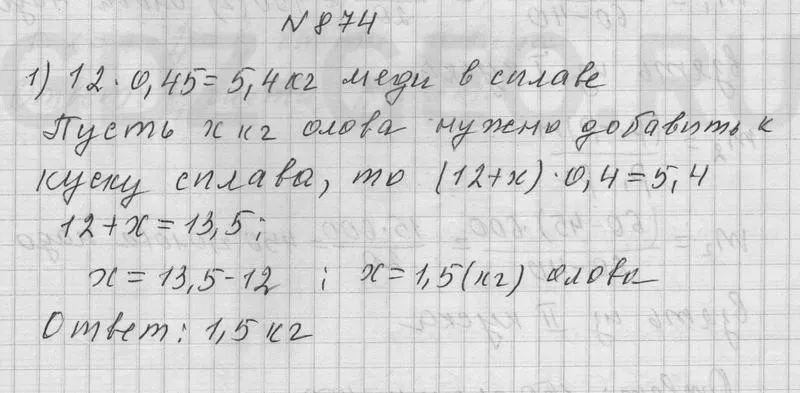 №874
1) 12·0,45=5,4кг меди в сплаве
Пусть x кг олова нужно добавить к
куску сплава, то (12+x)·0,4=5,4
12+x=13,5;
x=13,5-12 ; x=1,5(кг) олова
Ответ: 1,5 кг